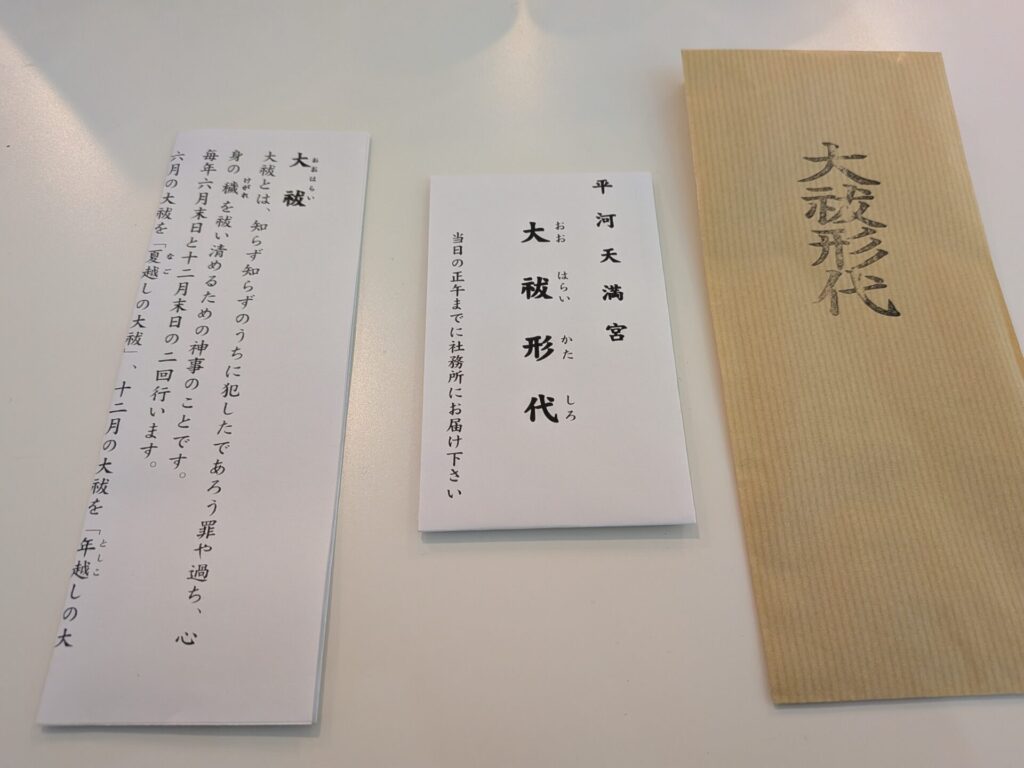 大祓
おおはらい
大祓とは、知らず知らずのうちに犯したであろう罪や過ち、心
身の穢を祓い清めるための神事のことです。
けがれ
毎年六月末日と十二月末日の二回行います。
六月の大祓を「夏越しの大祓」、十二月の大祓を「年越しの大
なご
としこ
平河天満宮
大祓形代
おお はらい かた しろ
当日の正午までに社務所にお届け下さい
大祓形代